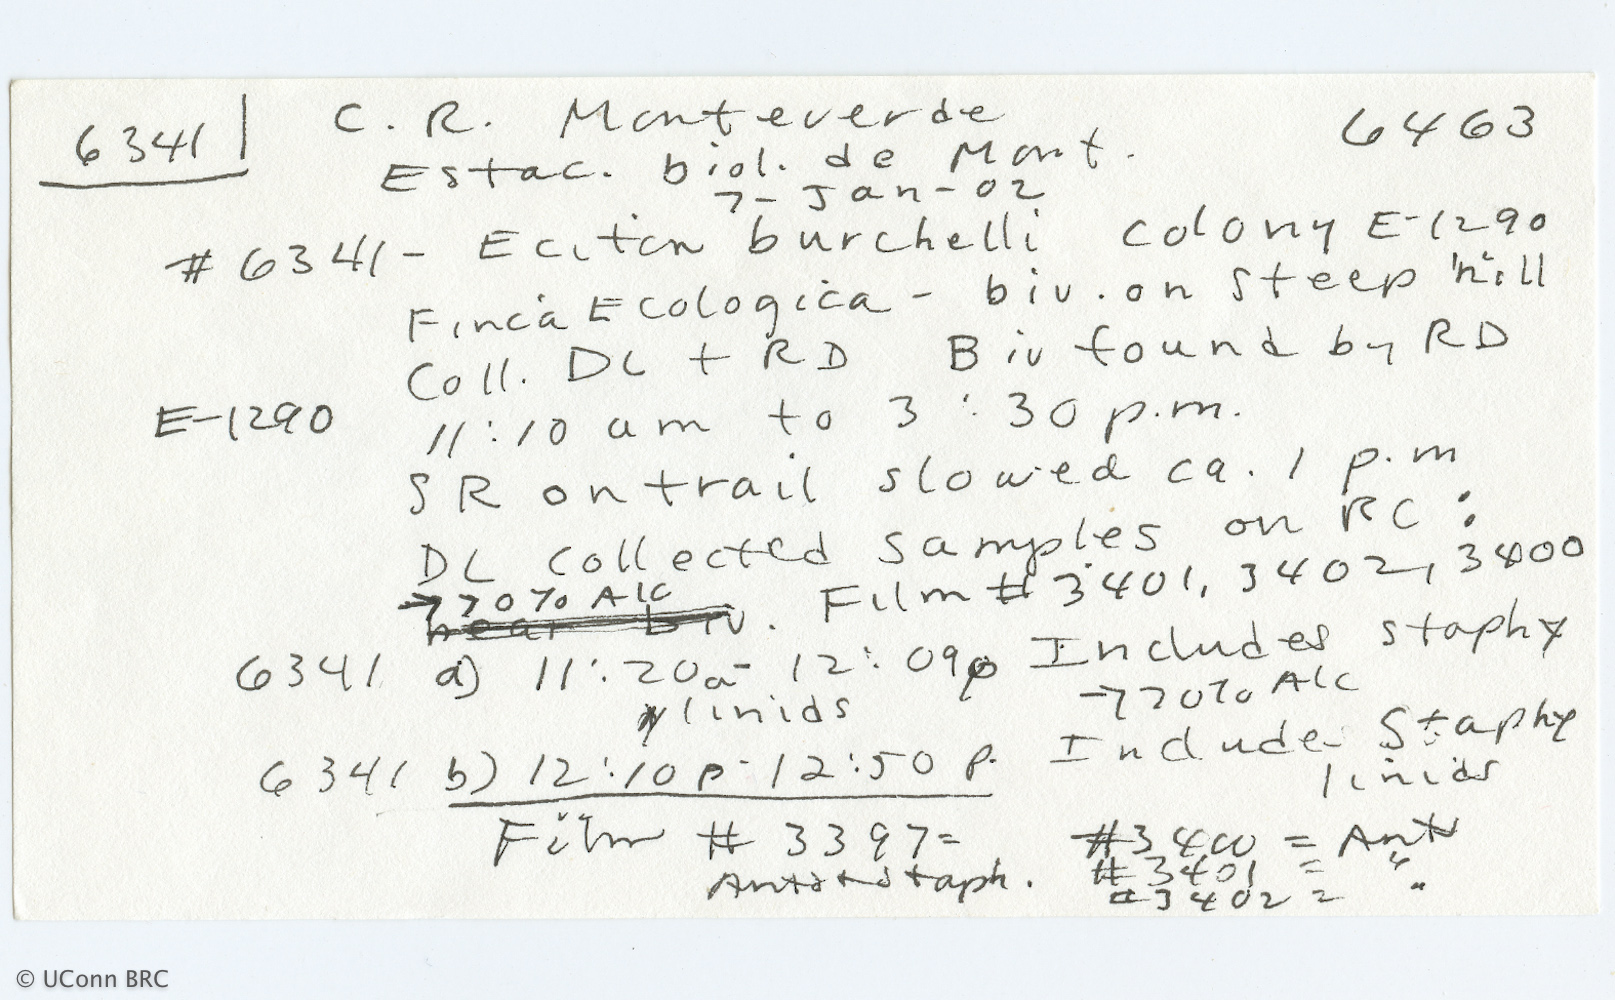 6341 C. R. Monteverde 6463
Estac. biol. de Mont.
7-Jan-02
#6341- Eciton burchelli colony E-1290
Finca Ecologica - biv. on steep hill
Coll. DL + RD Biv found by RD
E-1290 11:10 am to 3:30 p.m.
SR on trail slowed ca. 1 p.m
DL collected samples on RC:
→70% Alc
near biv. Film # 3401, 3402, 3400
6341 a) 11:20a-12:09p Includes staphy
linids →70% Alc
6341 b) 12:10p-12:50 p. Includes Staphy
linids
Film # 3397= #3400 = Ants
Ants+staph. #3401 = "
#3402 = "
© UConn BRC